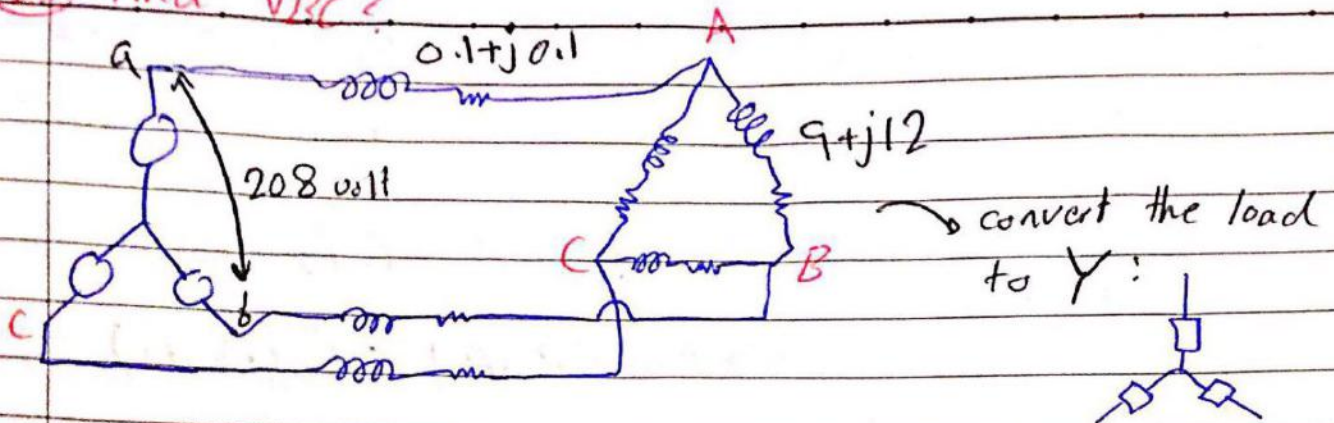 VBC?
a
0.1+j0.1
A
9+j12
208 volt
convert the load
C
B
to Y:
b
C